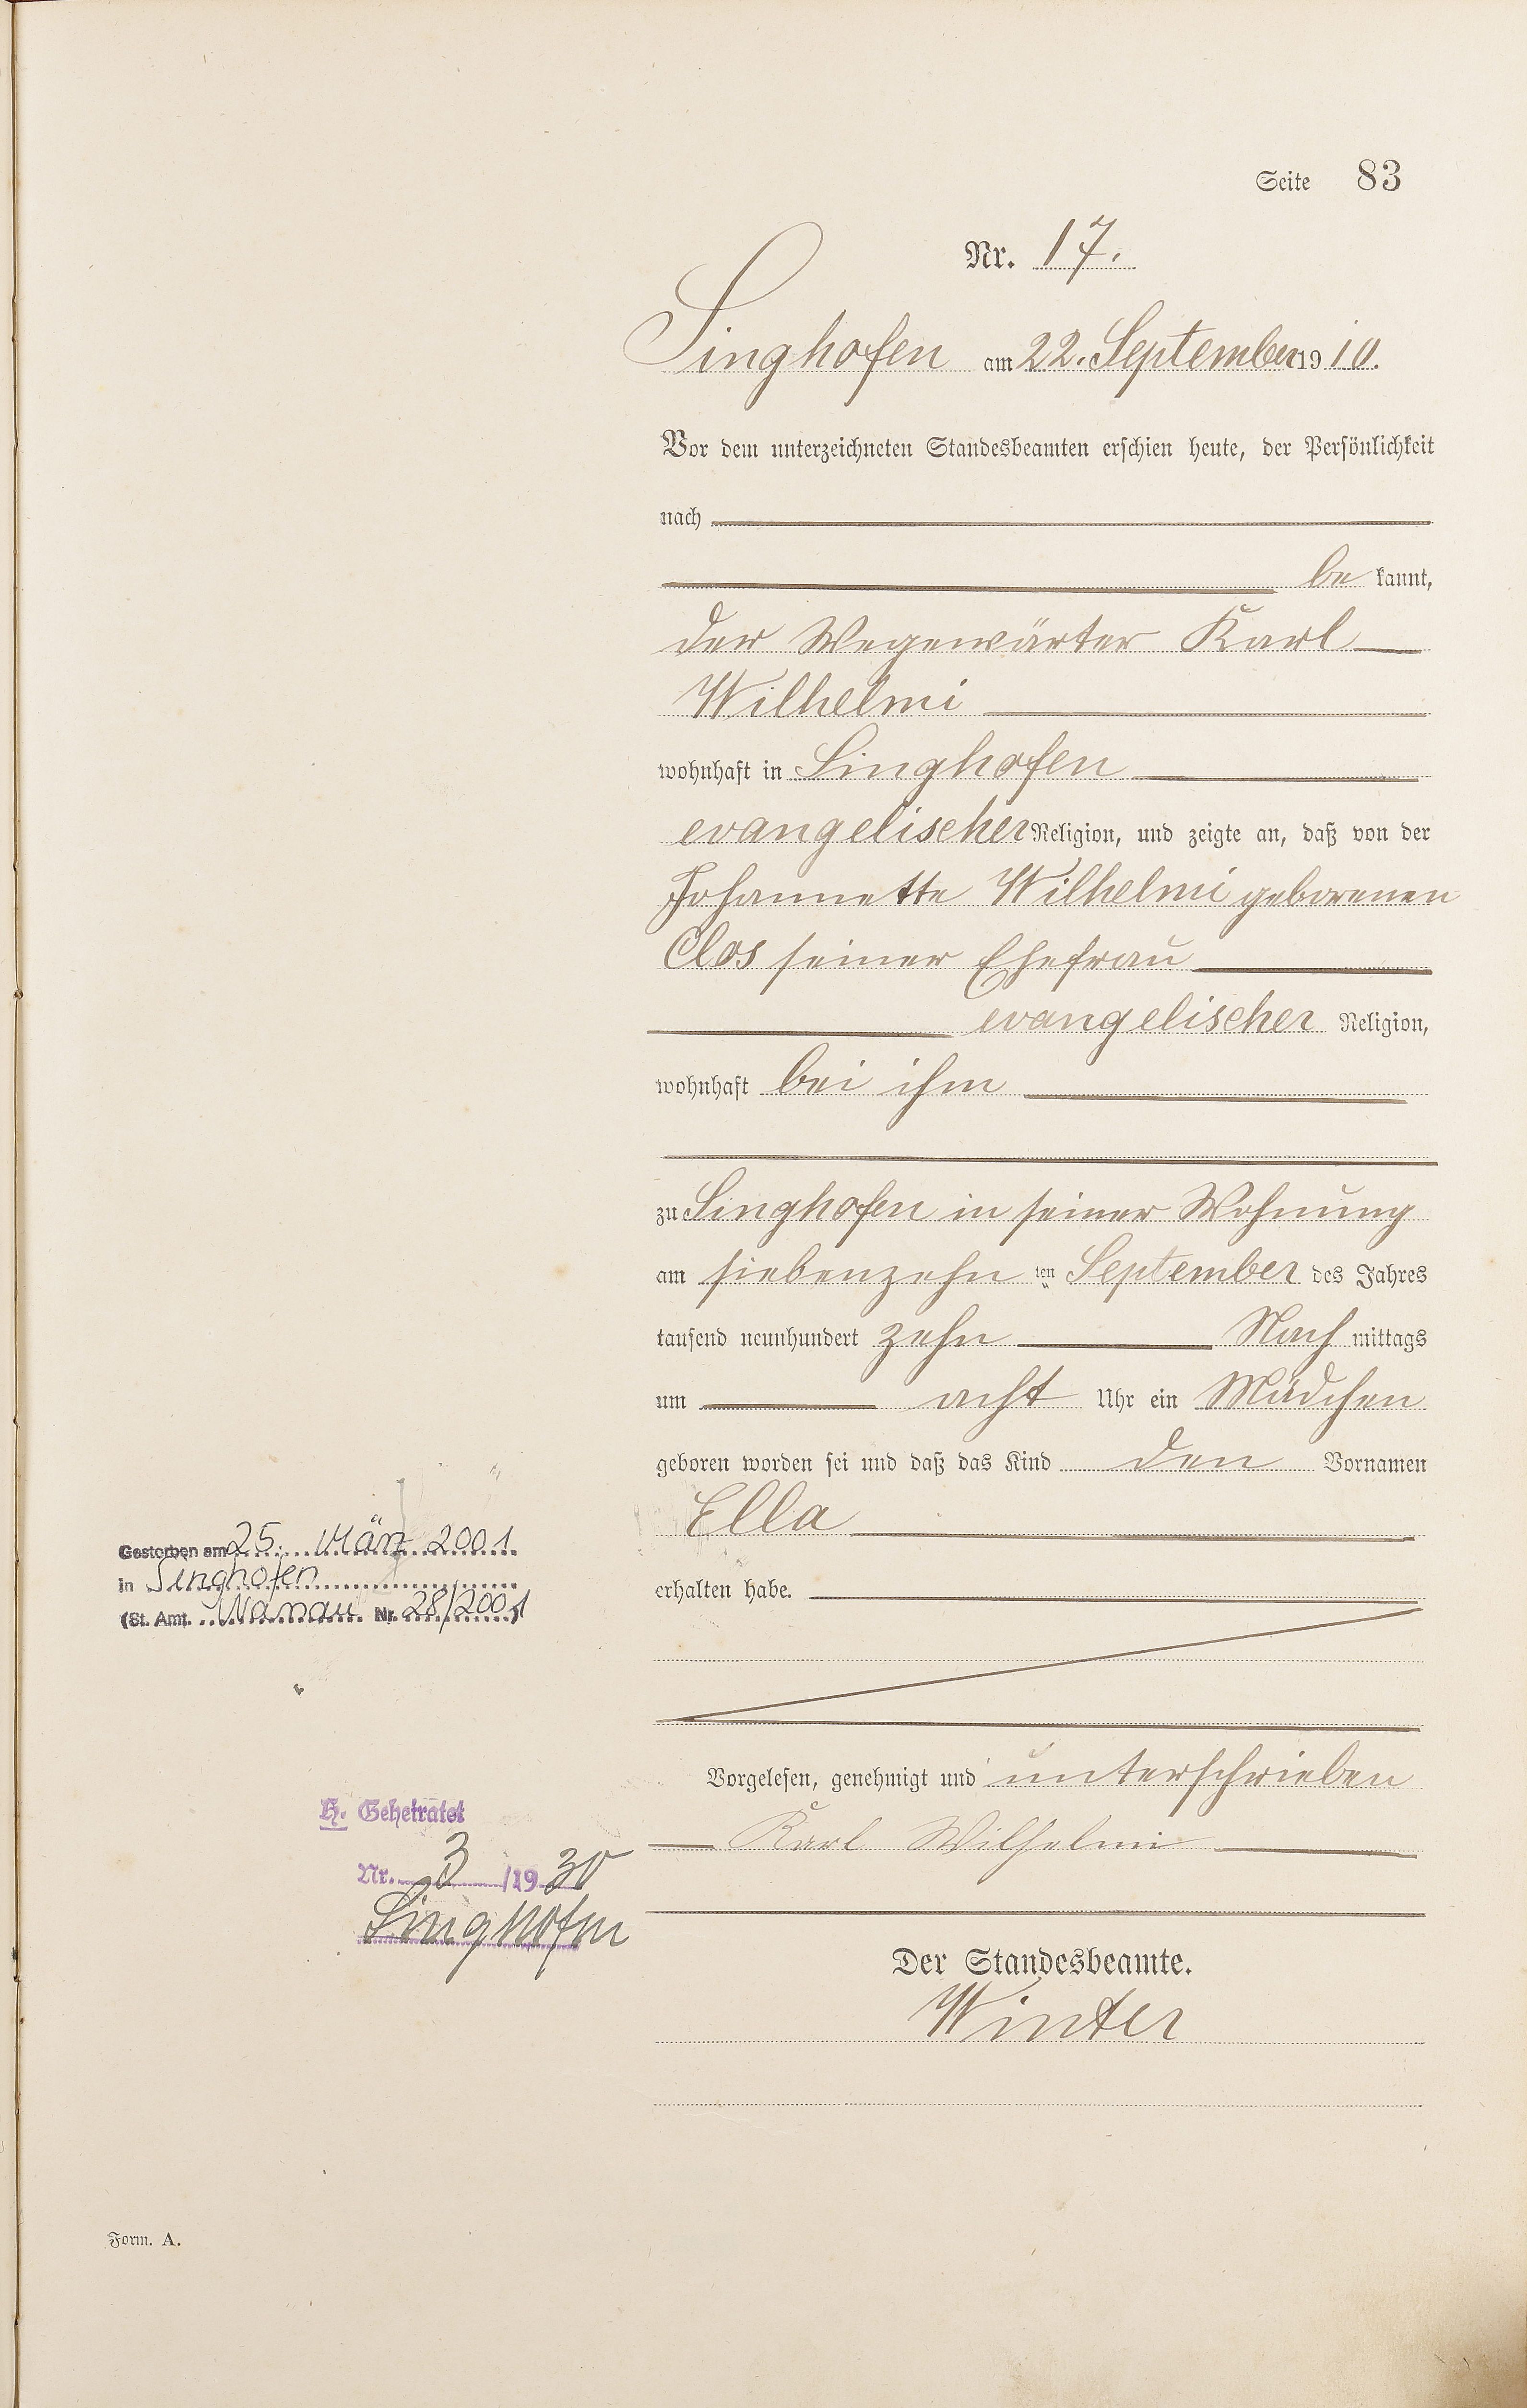 Seite 83
Nr. 17.
Singhofen am 22. September 1910.
Vor dem unterzeichneten Standesbeamten erschien heute, der Persönlichkeit
nach
be kannt,
der Wegewärter Karl
Wilhelmi
wohnhaft in Singhofen
evangelischer Religion, und zeigte an, daß von der
Johannette Wilhelmi geborenen
Clos seiner Ehefrau
evangelischer Religion,
wohnhaft bei ihm
zu Singhofen in seiner Wohnung
am siebenzehn ten September des Jahres
tausend neunhundert zehn Nach mittags
um acht Uhr ein Mädchen
geboren worden sei und daß das Kind den Vornamen
Ella
erhalten habe.
Vorgelesen, genehmigt und unterschrieben
Karl Wilhelmi
Der Standesbeamte.
Winter
Gestorben am 25. März 2001
in Singhofen
(St. Amt. Nr. 28/2001)
H. Geheiratet
Nr. 3 /19 30
Singhofen
Form. A.